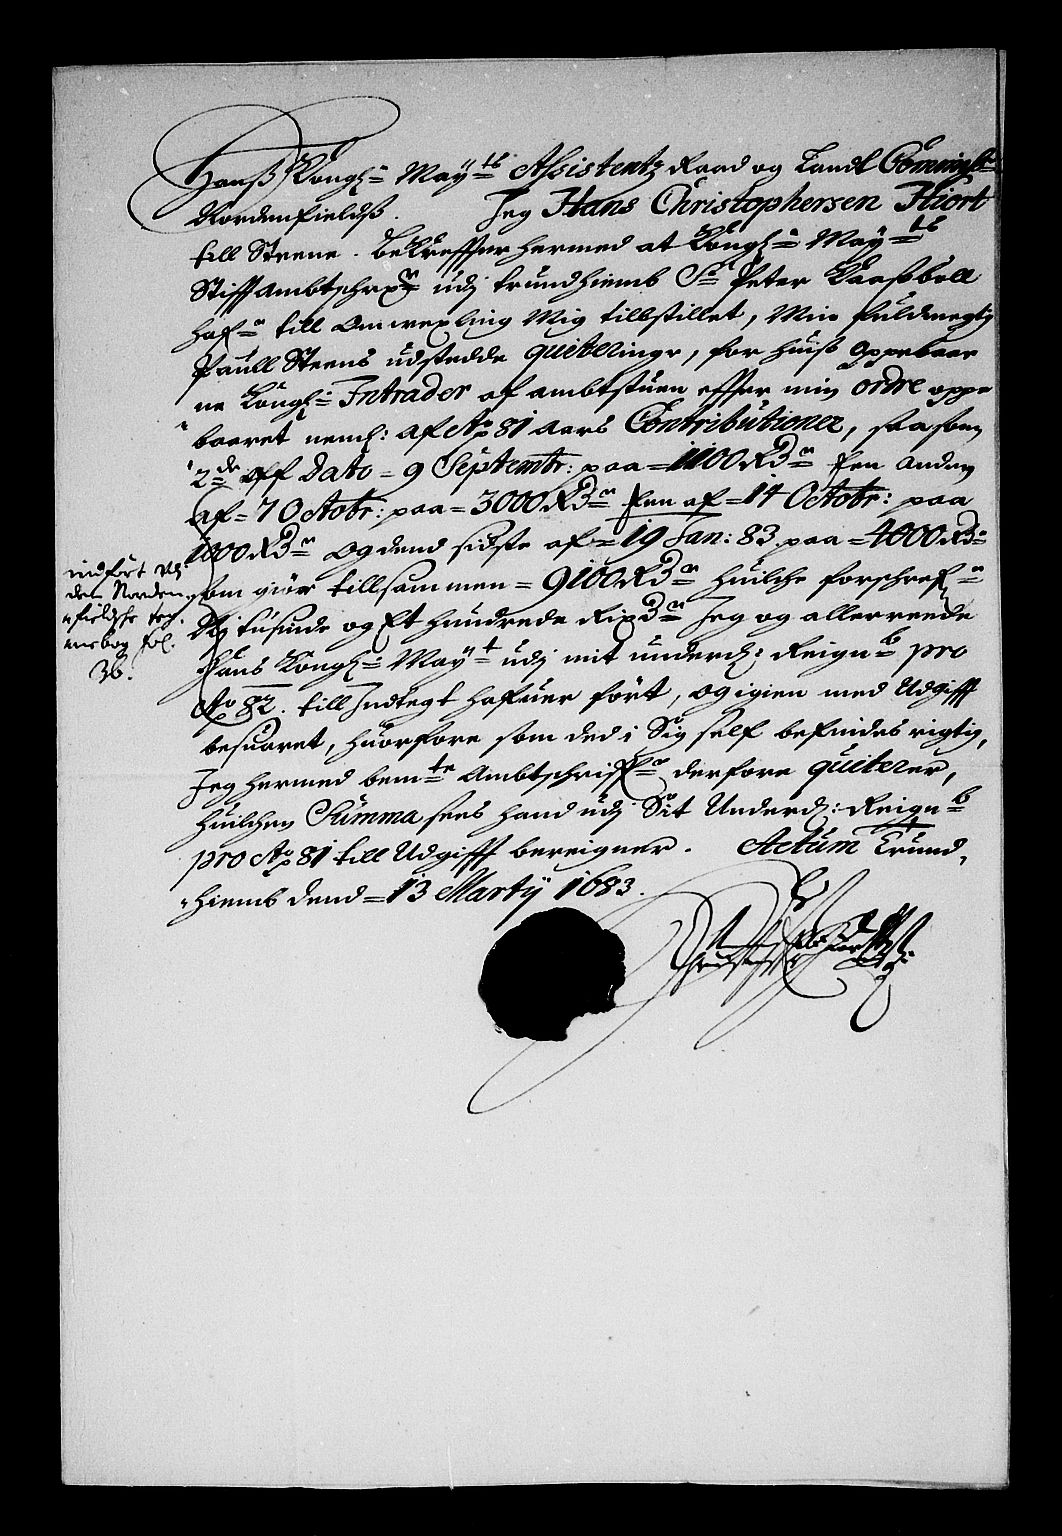 Hanß Kongl: May:ts Assistentz Raad og Landt Commiß:
Nordenfieldß. Jeg Hans Christophersen Hiort
till Steene. bekreffter hermed at Kongl: May:ts
Stifft Ambtschrifr: udj Trundhiemb Sr: Peter Kaaßböll
hafr: till Omvexling Mig tillstillet, Min fuldmegtig
Paull Steens udstedde quiteringr, for huiß Oppebaar
ne Kongl: Intrader af ambtstuen effter min ordre oppe
baaret neml: af Ao 81 Aars Contributioner, saasom
2de Aff Dato = 9 Septembr: paa = 1100 Rdr: Een anden
af = 7 Octobr: paa = 3000 Rdr: Een af = 14 Octobr: paa
1000 Rdr: Og dend sidste af = 19 Jan: 83. paa = 4000 Rdr:
som giør tillsammen = 9100 Rdr: Huilche forschrefne
Nj tusinde og Et hundrede Rixdr: Jeg og allerreede
Hans Kongl: May:t udj mit underd: Reignb: pro
Ao 82. till Indtegt hafuer ført, og igien med Udgifft
besuaret, huorfore som ded i Sig self befindes rigtig,
Jeg hermed bemte: Ambtschrifr: derfore quiterer,
Huilchen Summa, sees hand udj Sit Underd: Reignb:
pro Ao 81 till Udgifft bereigner. Actum Trund,
hiemb dend = 13 Martij 1683.
indført udj
den Norden,
fieldsche ter,
minsbog fol.
36.